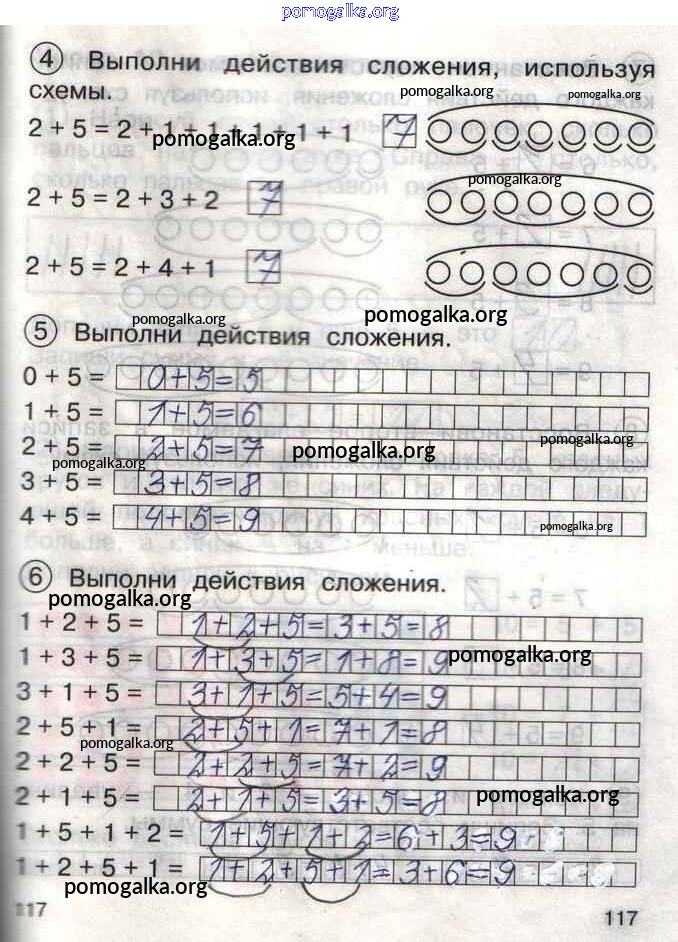 pomogalka.org
4 Выполни действия сложения, используя
схемы. pomogalka.org pomogalka.org
2 + 5 = 2 + 1 + 1 + 1 + 1 + 1 7
pomogalka.org
pomogalka.org
2 + 5 = 2 + 3 + 2 7
2 + 5 = 2 + 4 + 1 7
pomogalka.org pomogalka.org
5 Выполни действия сложения.
0 + 5 = 0+5=5
1 + 5 = 1+5=6
pomogalka.org
2 + 5 = 2+5=7 pomogalka.org
pomogalka.org
3 + 5 = 3+5=8
4 + 5 = 4+5=9
pomogalka.org
6 Выполни действия сложения.
pomogalka.org
1 + 2 + 5 = 1+2+5=3+5=8
1 + 3 + 5 = 1+3+5=1+8=9 pomogalka.org
3 + 1 + 5 = 3+1+5=5+4=9
2 + 5 + 1 = 2+5+1=7+1=8
pomogalka.org
2 + 2 + 5 = 2+2+5=7+2=9
2 + 1 + 5 = 2+1+5=3+5=8 pomogalka.org
1 + 5 + 1 + 2 = 1+5+1+2=6+3=9
1 + 2 + 5 + 1 = 1+2+5+1=3+6=9
pomogalka.org
117 117